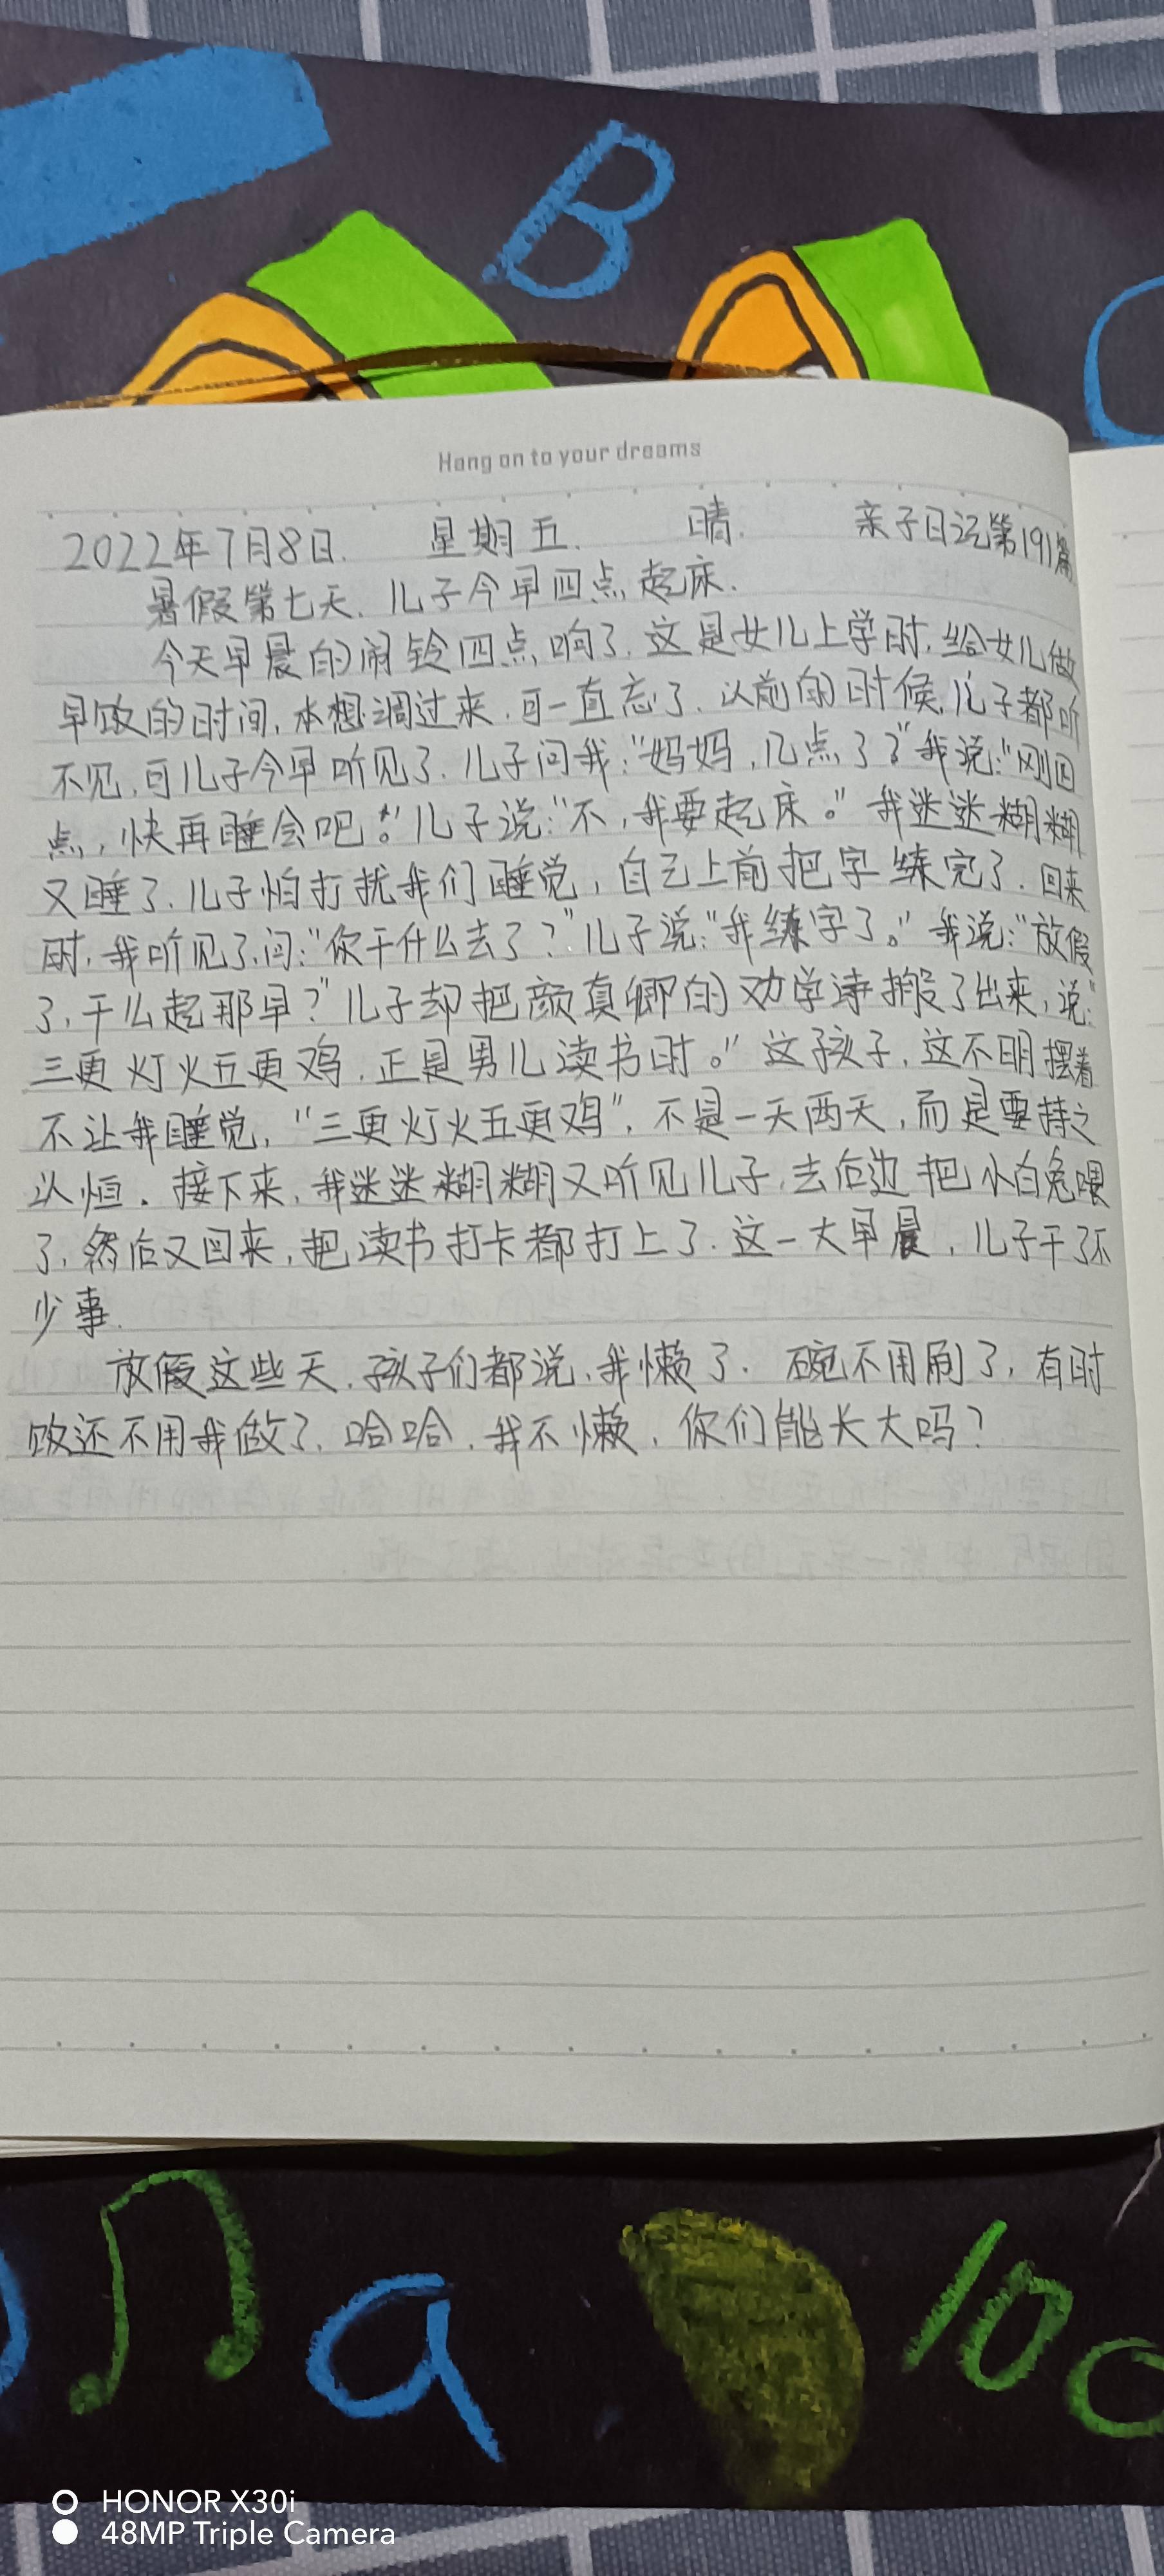 B
Hang on to your dreams
2022年7月8日. 星期五. 晴. 亲子日记第191篇
暑假第七天.儿子今早四点起床.
今天早晨的闹铃四点响了.这是女儿上学时.给女儿做
早饭的时间,本想调过来.可一直忘了.以前的时候,儿子都听
不见,可儿子今早听见了.儿子问我:“妈妈,几点了?”我说:“刚四
点,快再睡会吧。”儿子说:“不,我要起床。”我迷迷糊糊
又睡了.儿子怕打扰我们睡觉,自己上前把字练完了.回来
时,我听见了,问:“你干什么去了?”儿子说:“我练字了。”我说:“放假
了,干么起那早?”儿子却把颜真卿的劝学诗搬了出来,说:“
三更灯火五更鸡,正是男儿读书时。”这孩子,这不明摆着
不让我睡觉,“三更灯火五更鸡”,不是一天两天,而是要持之
以恒.接下来,我迷迷糊糊又听见儿子,去后边把小白兔喂
了,然后又回来,把读书打卡都打上了.这一大早晨,儿子干了不
少事.
放假这些天,孩子们都说,我懒了.碗不用刷了,有时
饭还不用我做了.哈哈,我不懒,你们能长大吗?
a
10
HONOR X30i
48MP Triple Camera